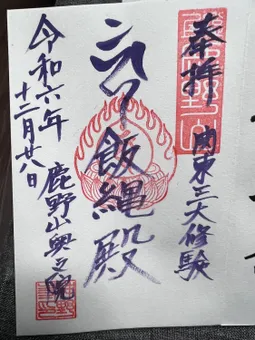 奉拝
関東三大修験
飯縄殿
鹿野山奥之院
令和六年
十二月廿八日